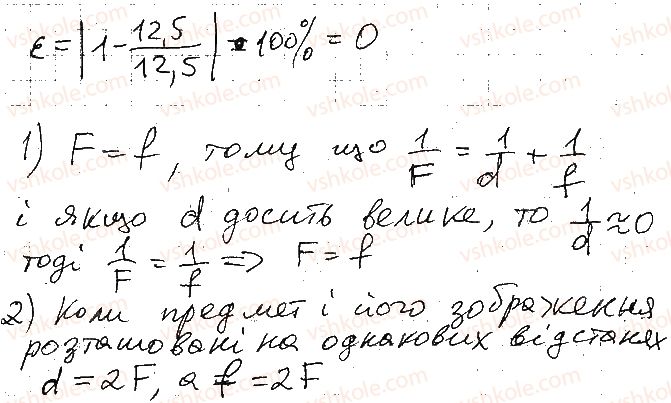 ε = |1 - 12,5/12,5| • 100% = 0
1) F = f, тому що 1/F = 1/d + 1/f
і якщо d досить велике, то 1/d ≈ 0
тоді 1/F = 1/f => F = f
2) Коли предмет і його зображення
розташовані на однакових відстанях
d = 2F, а f = 2F